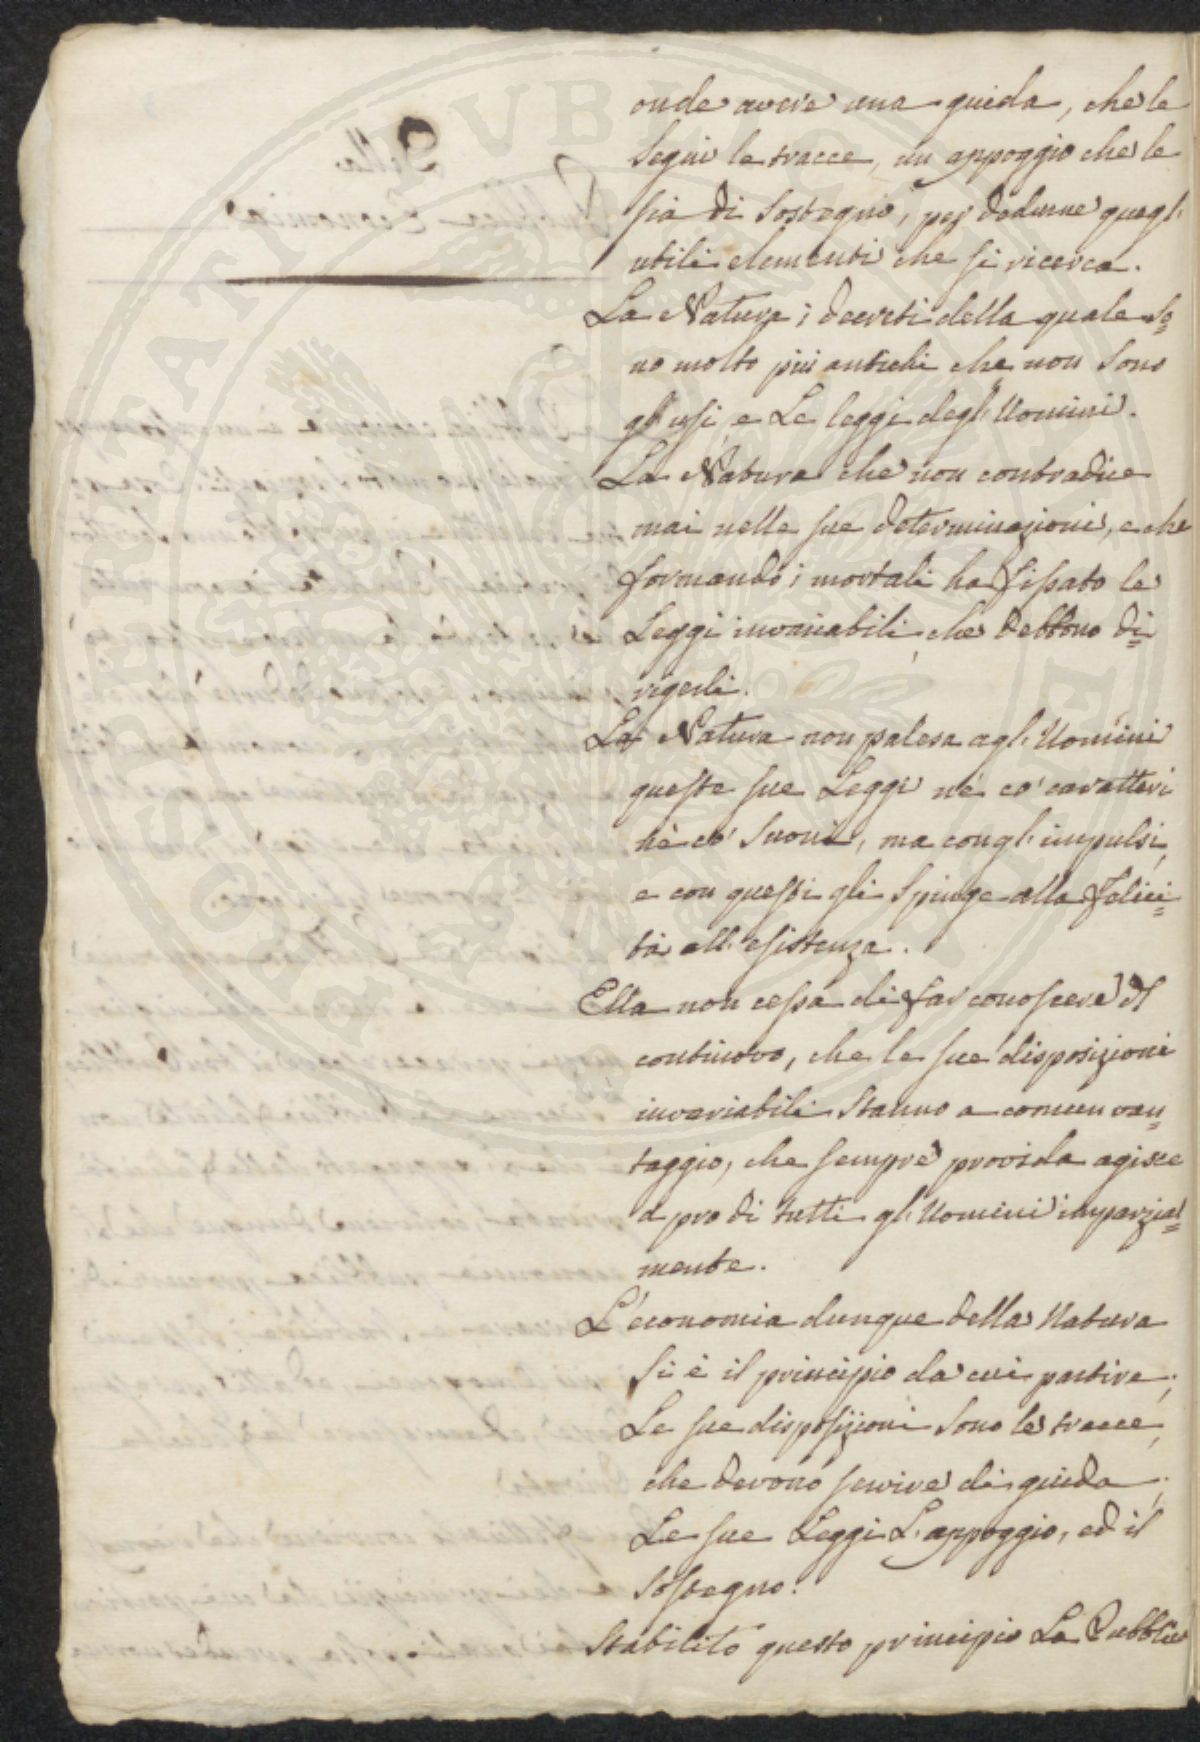 onde avere una guida, che le
segni le tracce, un appoggio che le
sia di sostegno, per dedurne quegl'
utili elementi che si ricerca.
La Natura i decreti della quale so=
no molto più antichi che non sono
gl'usi e Le leggi degl'Uomini.
La Natura che non contradice
mai nelle sue determinazioni, e che
formando i mortali ha fissato le
Leggi invariabili che debbono di=
rigerli.
La Natura non palesa agl'Uomini
queste sue Leggi nè co' caratteri
nè co' suoni, ma congl'impulsi,
e con questi gli spinge alla felici=
tà all'esistenza.
Ella non cessa di far conoscere di
continovo, che le sue disposizioni
invariabili stanno a comun van=
taggio, che sempre provida agisce
a pro di tutti gl'Uomini imparzial=
mente.
L'economia dunque della Natura
si è il principio da cui partire;
Le sue disposizioni sono le tracce,
che devono servire di guida;
Le sue Leggi L'appoggio, ed il
sostegno.
Stabilito questo principio La Pubblica